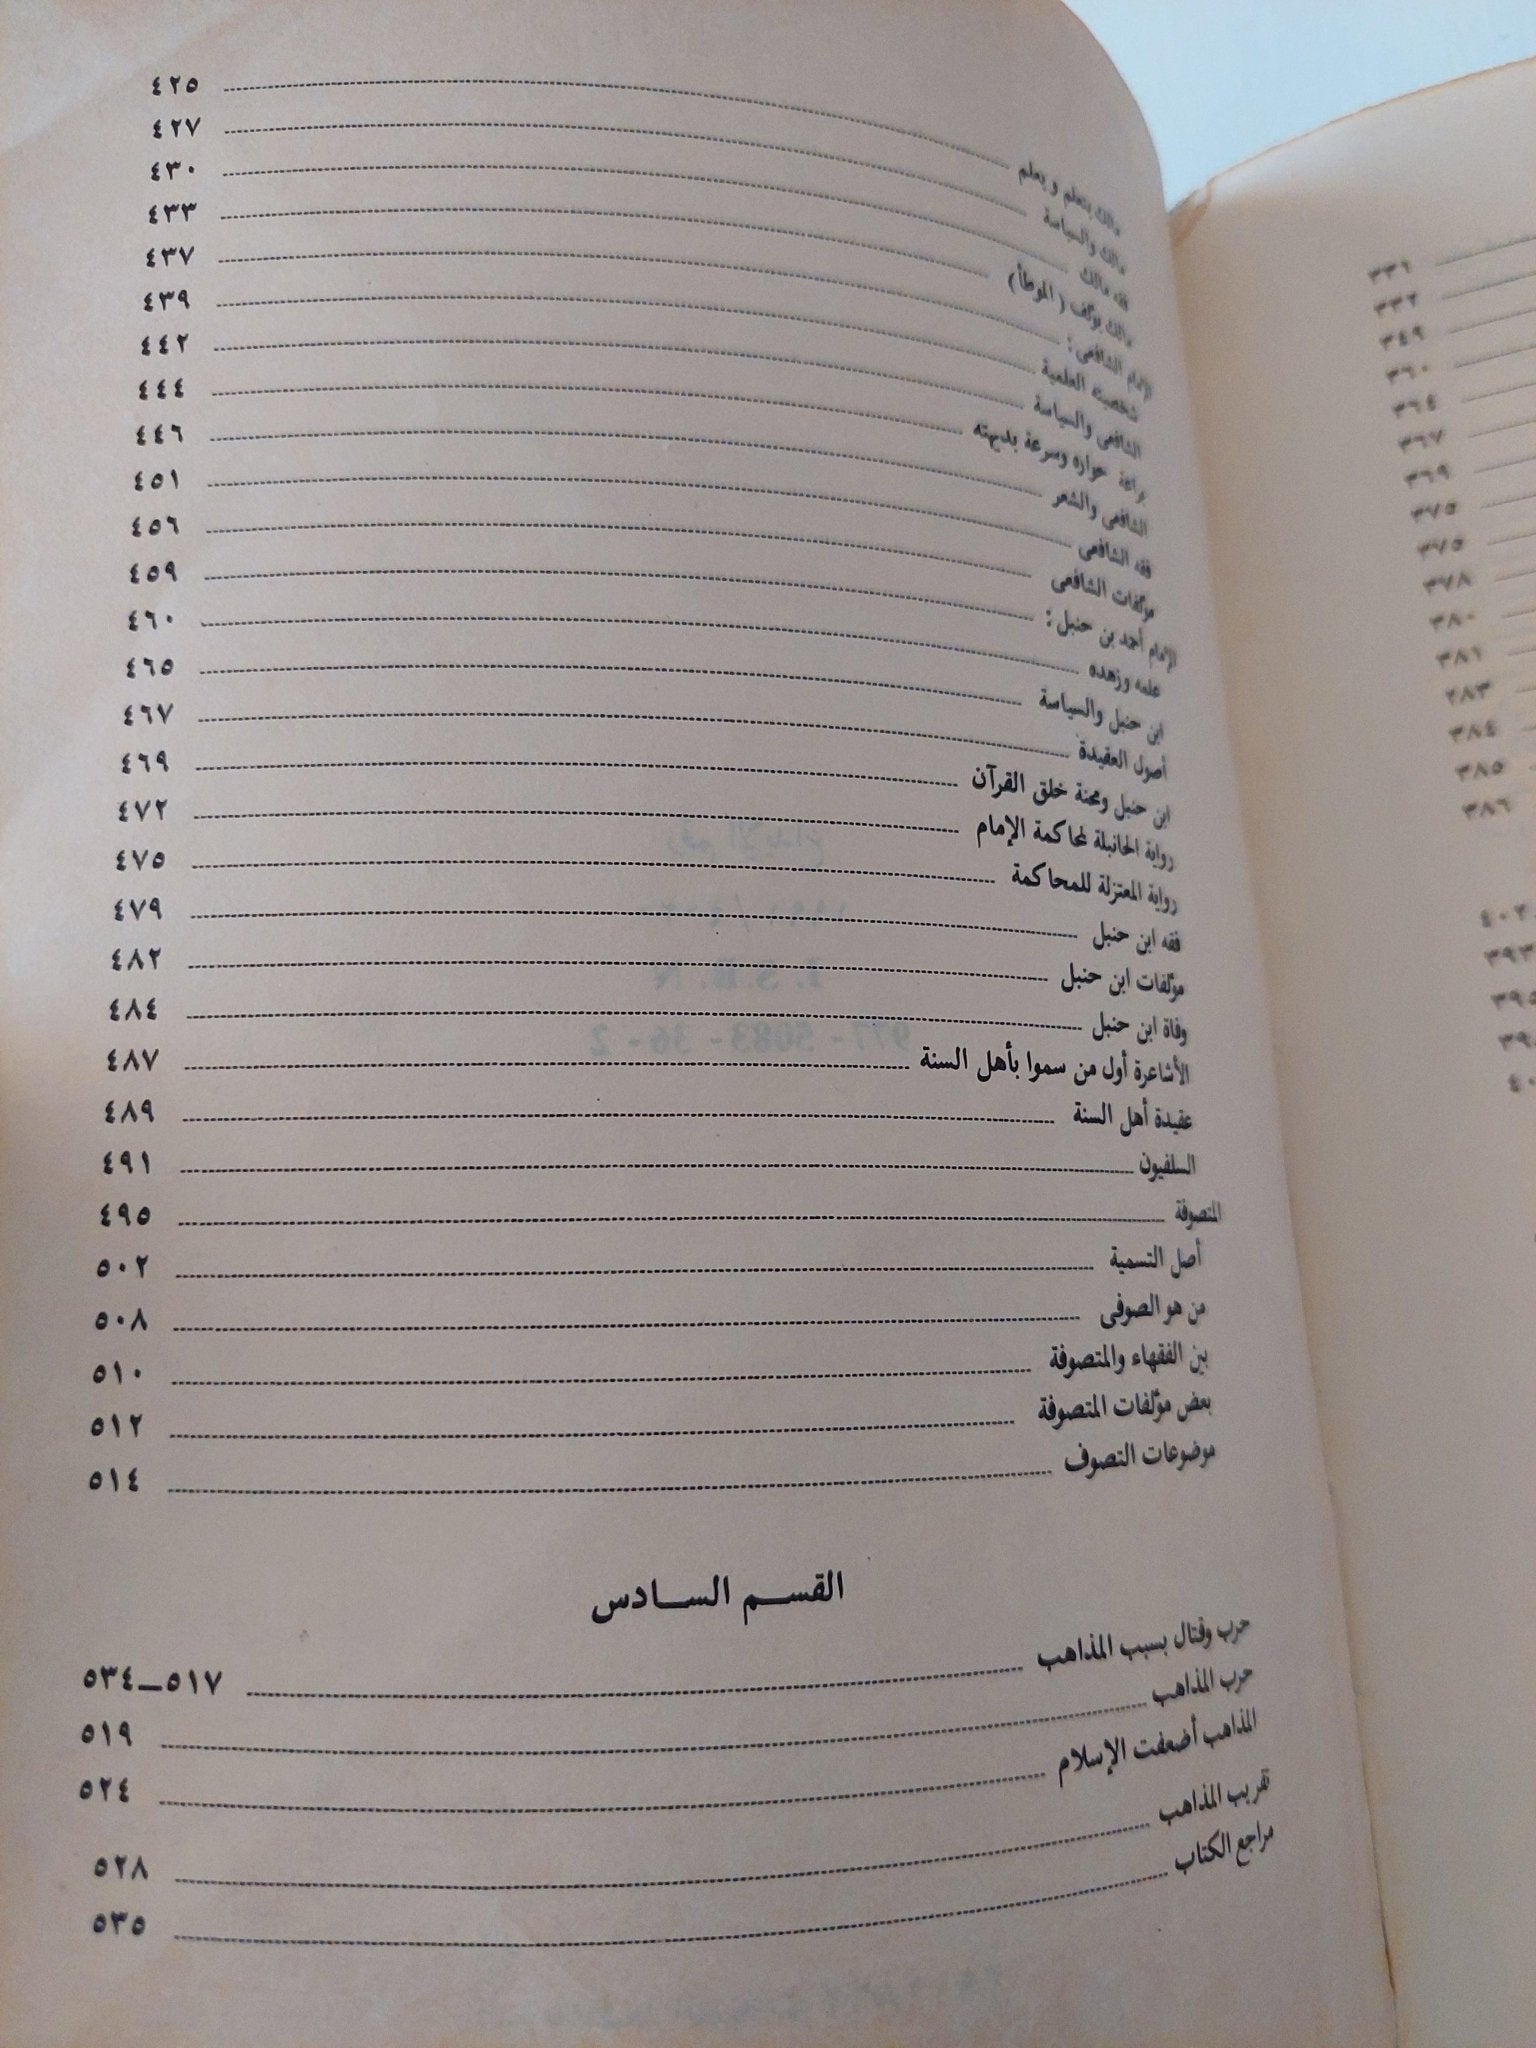 مالك يتعلم ويعلم ٤٢٥
مالك والسياسة ٤٢٧
فقه مالك ٤٣٠
مالك يؤلف ( الموطأ ) ٤٣٣
الإمام الشافعى : ٤٣٧
شخصيته العلمية ٤٣٩
الشافعى والسياسة ٤٤٢
براعة حواره وسرعة بديهته ٤٤٤
الشافعى والشعر ٤٤٦
فقه الشافعى ٤٥١
مؤلفات الشافعى ٤٥٦
الإمام أحمد بن حنبل : ٤٥٩
علمه وزهده ٤٦٠
ابن حنبل والسياسة ٤٦٥
أصول العقيدة ٤٦٧
ابن حنبل ومحنة خلق القرآن ٤٦٩
رواية الحنابلة لمحاكمة الإمام ٤٧٢
رواية المعتزلة للمحاكمة ٤٧٥
فقه ابن حنبل ٤٧٩
مؤلفات ابن حنبل ٤٨٢
وفاة ابن حنبل ٤٨٤
الأشاعرة أول من سموا بأهل السنة ٤٨٧
عقيدة أهل السنة ٤٨٩
السلفيون ٤٩١
المتصوفة ٤٩٥
أصل التسمية ٥٠٢
من هو الصوفى ٥٠٨
بين الفقهاء والمتصوفة ٥١٠
بعض مؤلفات المتصوفة ٥١٢
موضوعات التصوف ٥١٤
القسم السادس
حرب وقتال بسبب المذاهب ٥١٧–٥٣٤
حرب المذاهب ٥١٩
المذاهب أضعفت الإسلام ٥٢٤
تقريب المذاهب ٥٢٨
مراجع الكتاب ٥٣٥
٣٣١
٣٣٢
٣٤٩
٣٦٠
٣٦٤
٣٦٧
٣٦٩
٣٧٥
٣٧٥
٣٧٨
٣٨٠
٣٨١
٣٨٣
٣٨٤
٣٨٥
٣٨٦